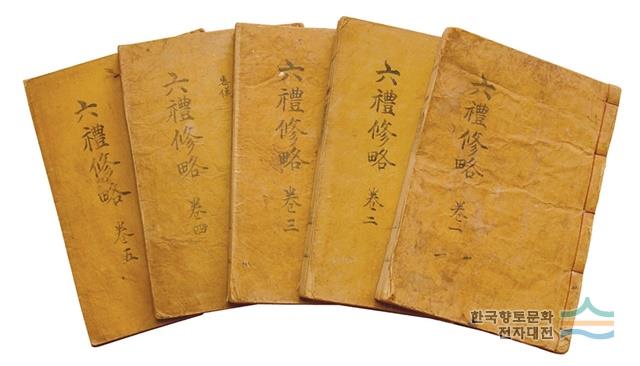 六禮修略 卷一
六禮修略 卷二
六禮修略 卷三
六禮修略 卷四
六禮修略 卷五
한국향토문화
전자대전